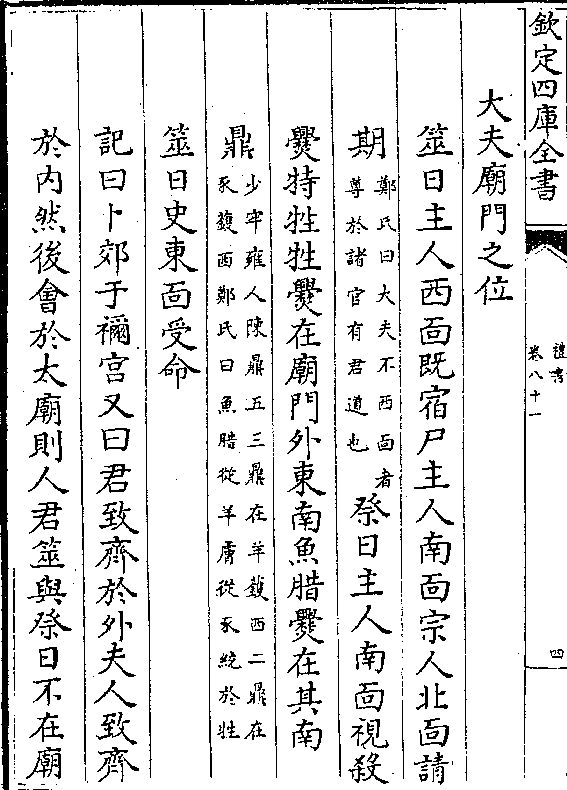 欽定四庫全書
禮書
卷八十一
四
大夫廟門之位
筮日主人西面既宿尸主人南面宗人北面請
期
鄭氏曰大夫不西面者
尊於諸官有君道也
祭日主人南面視殺
爨特牲牲爨在廟門外東南魚腊爨在其南
鼎
少牢雍人陳鼎五三鼎在羊鑊西二鼎在
豕鑊西鄭氏曰魚腊從羊膚從豕統於牲
筮日史東面受命
記曰卜郊于禰宫又曰君致齊於外夫人致齊
於内然後會於太廟則人君筮與祭日不在廟